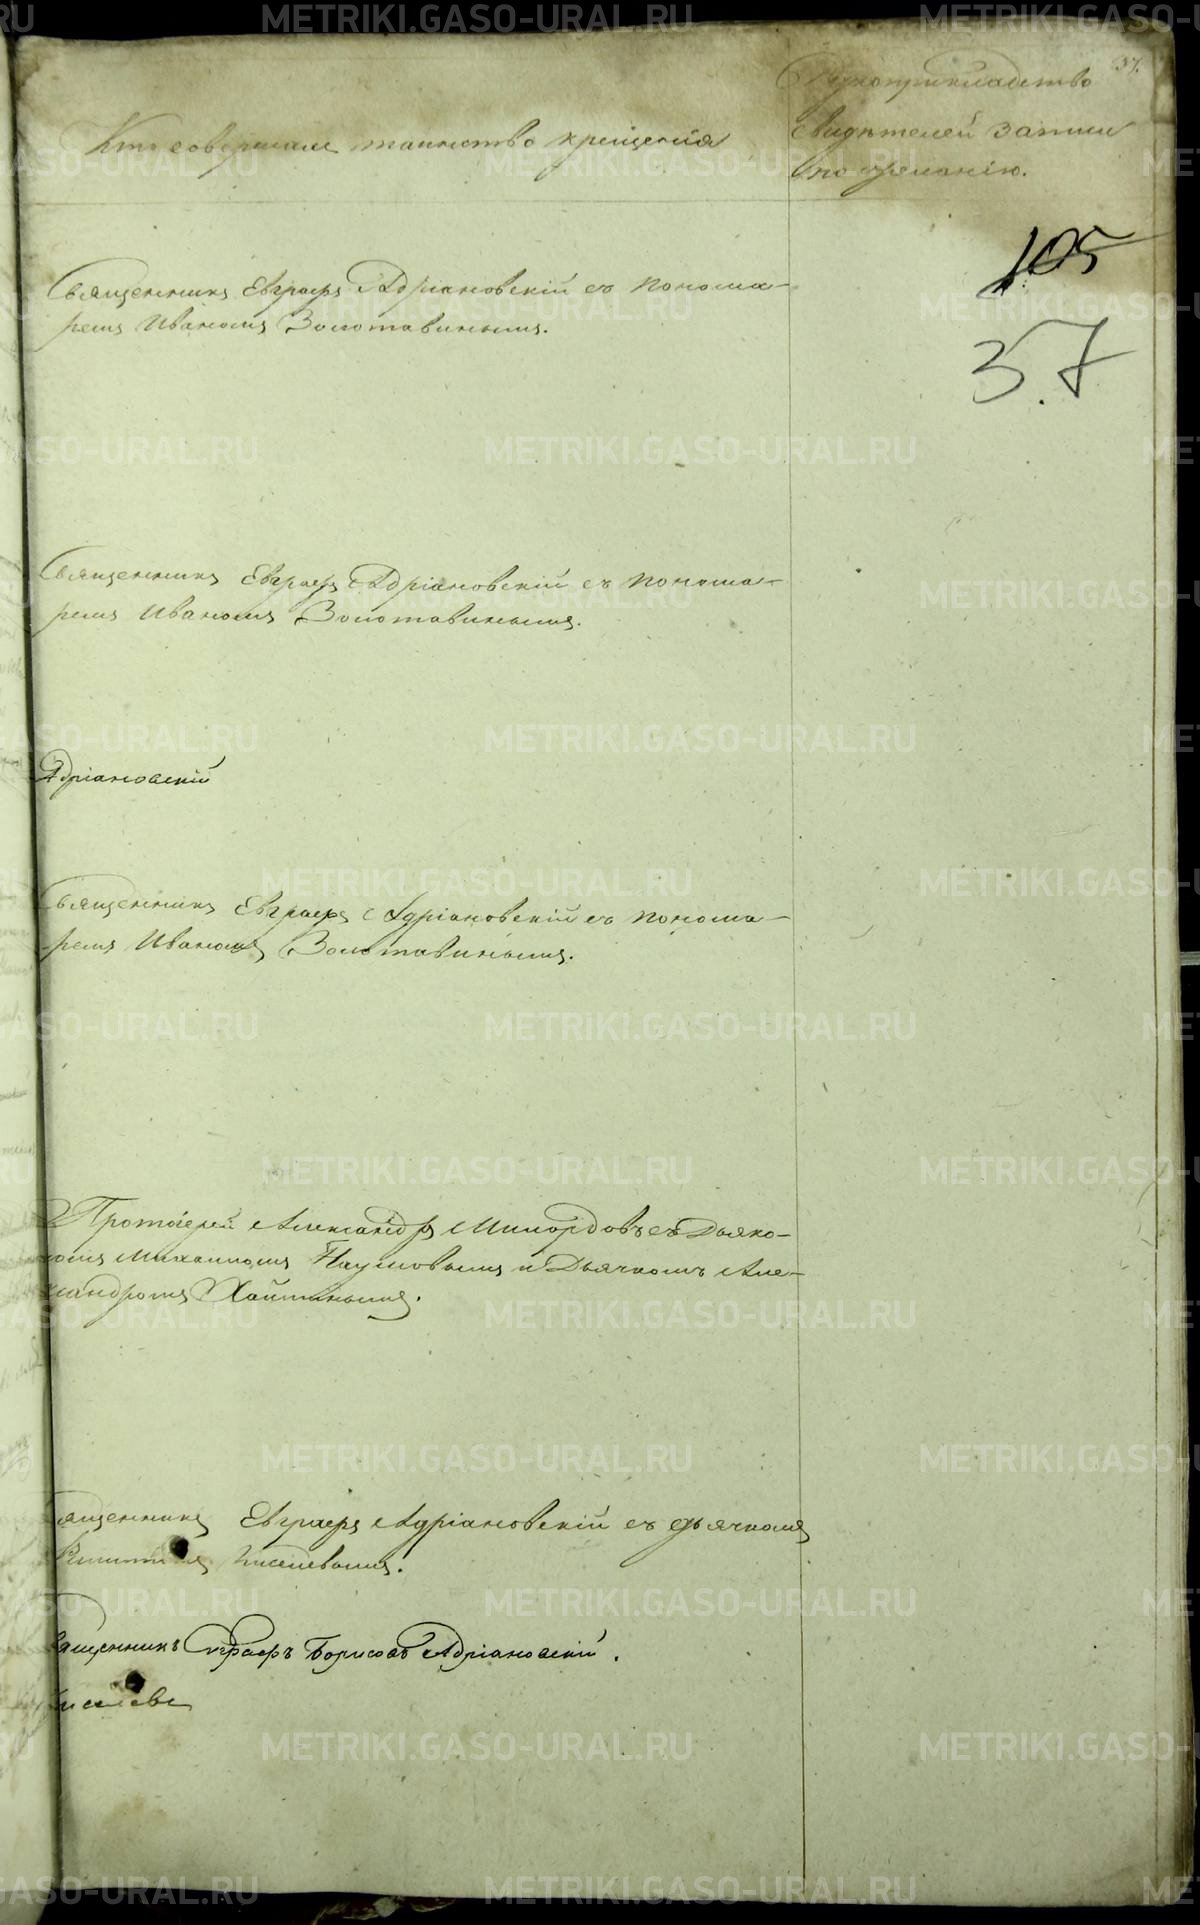 37.
Кто совершалъ таинство крещенія
Рукоприкладство
свидѣтелей записи
по желанію.
105
37
Священникъ Евграфъ Адріановскій съ понома-
ремъ Иваномъ Золотавинымъ.
Священникъ Евграфъ Адріановскій съ понома-
ремъ Иваномъ Золотавинымъ.
Адріановскій
Священникъ Евграфъ Адріановскій съ понома-
ремъ Иваномъ Золотавинымъ.
Протоіерей Александръ Милордовъ съ Дьяко-
номъ Михаиломъ Наумовымъ и Дьячкомъ Але-
ксандромъ Хайтинымъ.
Священникъ Евграфъ Адріановскій съ дьячкомъ
Киселевымъ.
Священникъ Евграфъ Борисовъ Адріановскій.
Киселевъ